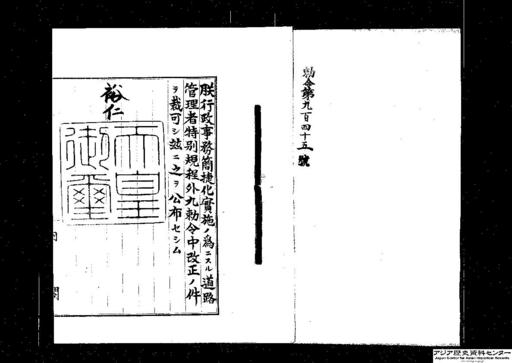 勅令第九百四十五號
朕行政事務簡捷化實施ノ爲ニスル道路
管理者特別規程外九勅令中改正ノ件
ヲ裁可シ茲ニ之ヲ公布セシム
裕仁
天皇御璽
アジア歴史資料センター
Japan Center for Asian Historical Records